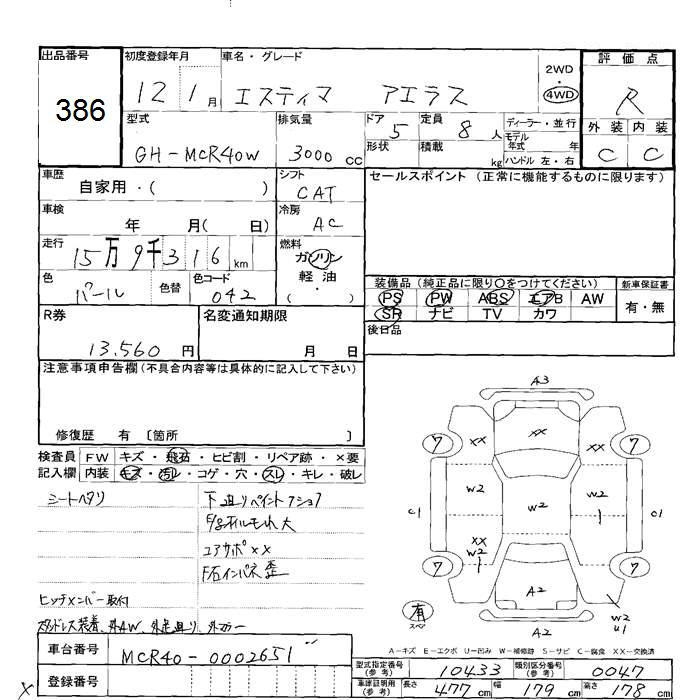 出品番号
386
初度登録年月
12 1月
車名・グレード
エスティマ アエラス
2WD
・
4WD
評価点
R
外装 内装
C C
型式
GH-MCR40W
排気量
3000cc
ドア
5
形状
定員
8人
積載
kg
ディーラー・並行
モデル年式 年
ハンドル 左・右
車歴
自家用・( )
シフト
CAT
セールスポイント (正常に機能するものに限ります)
車検
年 月( 日)
冷房
AC
走行
15万9千316km
燃料
ガソリン
軽油
( ・ )
色
パール
色替
色コード
042
装備品 (純正品に限り○をつけてください)
PS PW ABS エアB AW
SR ナビ TV カワ
新車保証書
有・無
後日品
R券
13,560円
名変通知期限
月 日
注意事項申告欄(不具合内容等は具体的に記入して下さい)
修復歴 有 〔箇所 〕
検査員
記入欄
FW キズ・飛石・ヒビ割・リペア跡・×要
内装 キズ・汚レ・コゲ・穴・スレ・キレ・破レ
シートヘタリ
下廻りペイント
コアサポ××
F右インパネ歪
ヒッチメンバー取付
スタッドレス装着、外AW、
A3
7 XX XX XX 7
W2 W2 W2
C1 1 C1
XX
W2
1
7 7
A2
有
スペア
A2
W2
U1
A-キズ E-エクボ U-凹み W-補修跡 S-サビ C-腐食 XX-交換済
車台番号
MCR40-0002651
登録番号
X
型式指定番号(参考)
10433
類別区分番号(参考)
0047
車庫証明用(参考)
長さ 477cm 幅 179cm 高さ 178cm